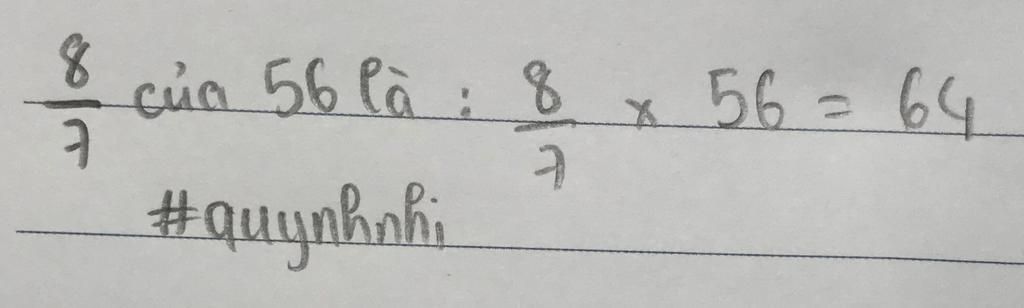 8/7 của 56 là : 8/7 x 56 = 64
#quynhnhi